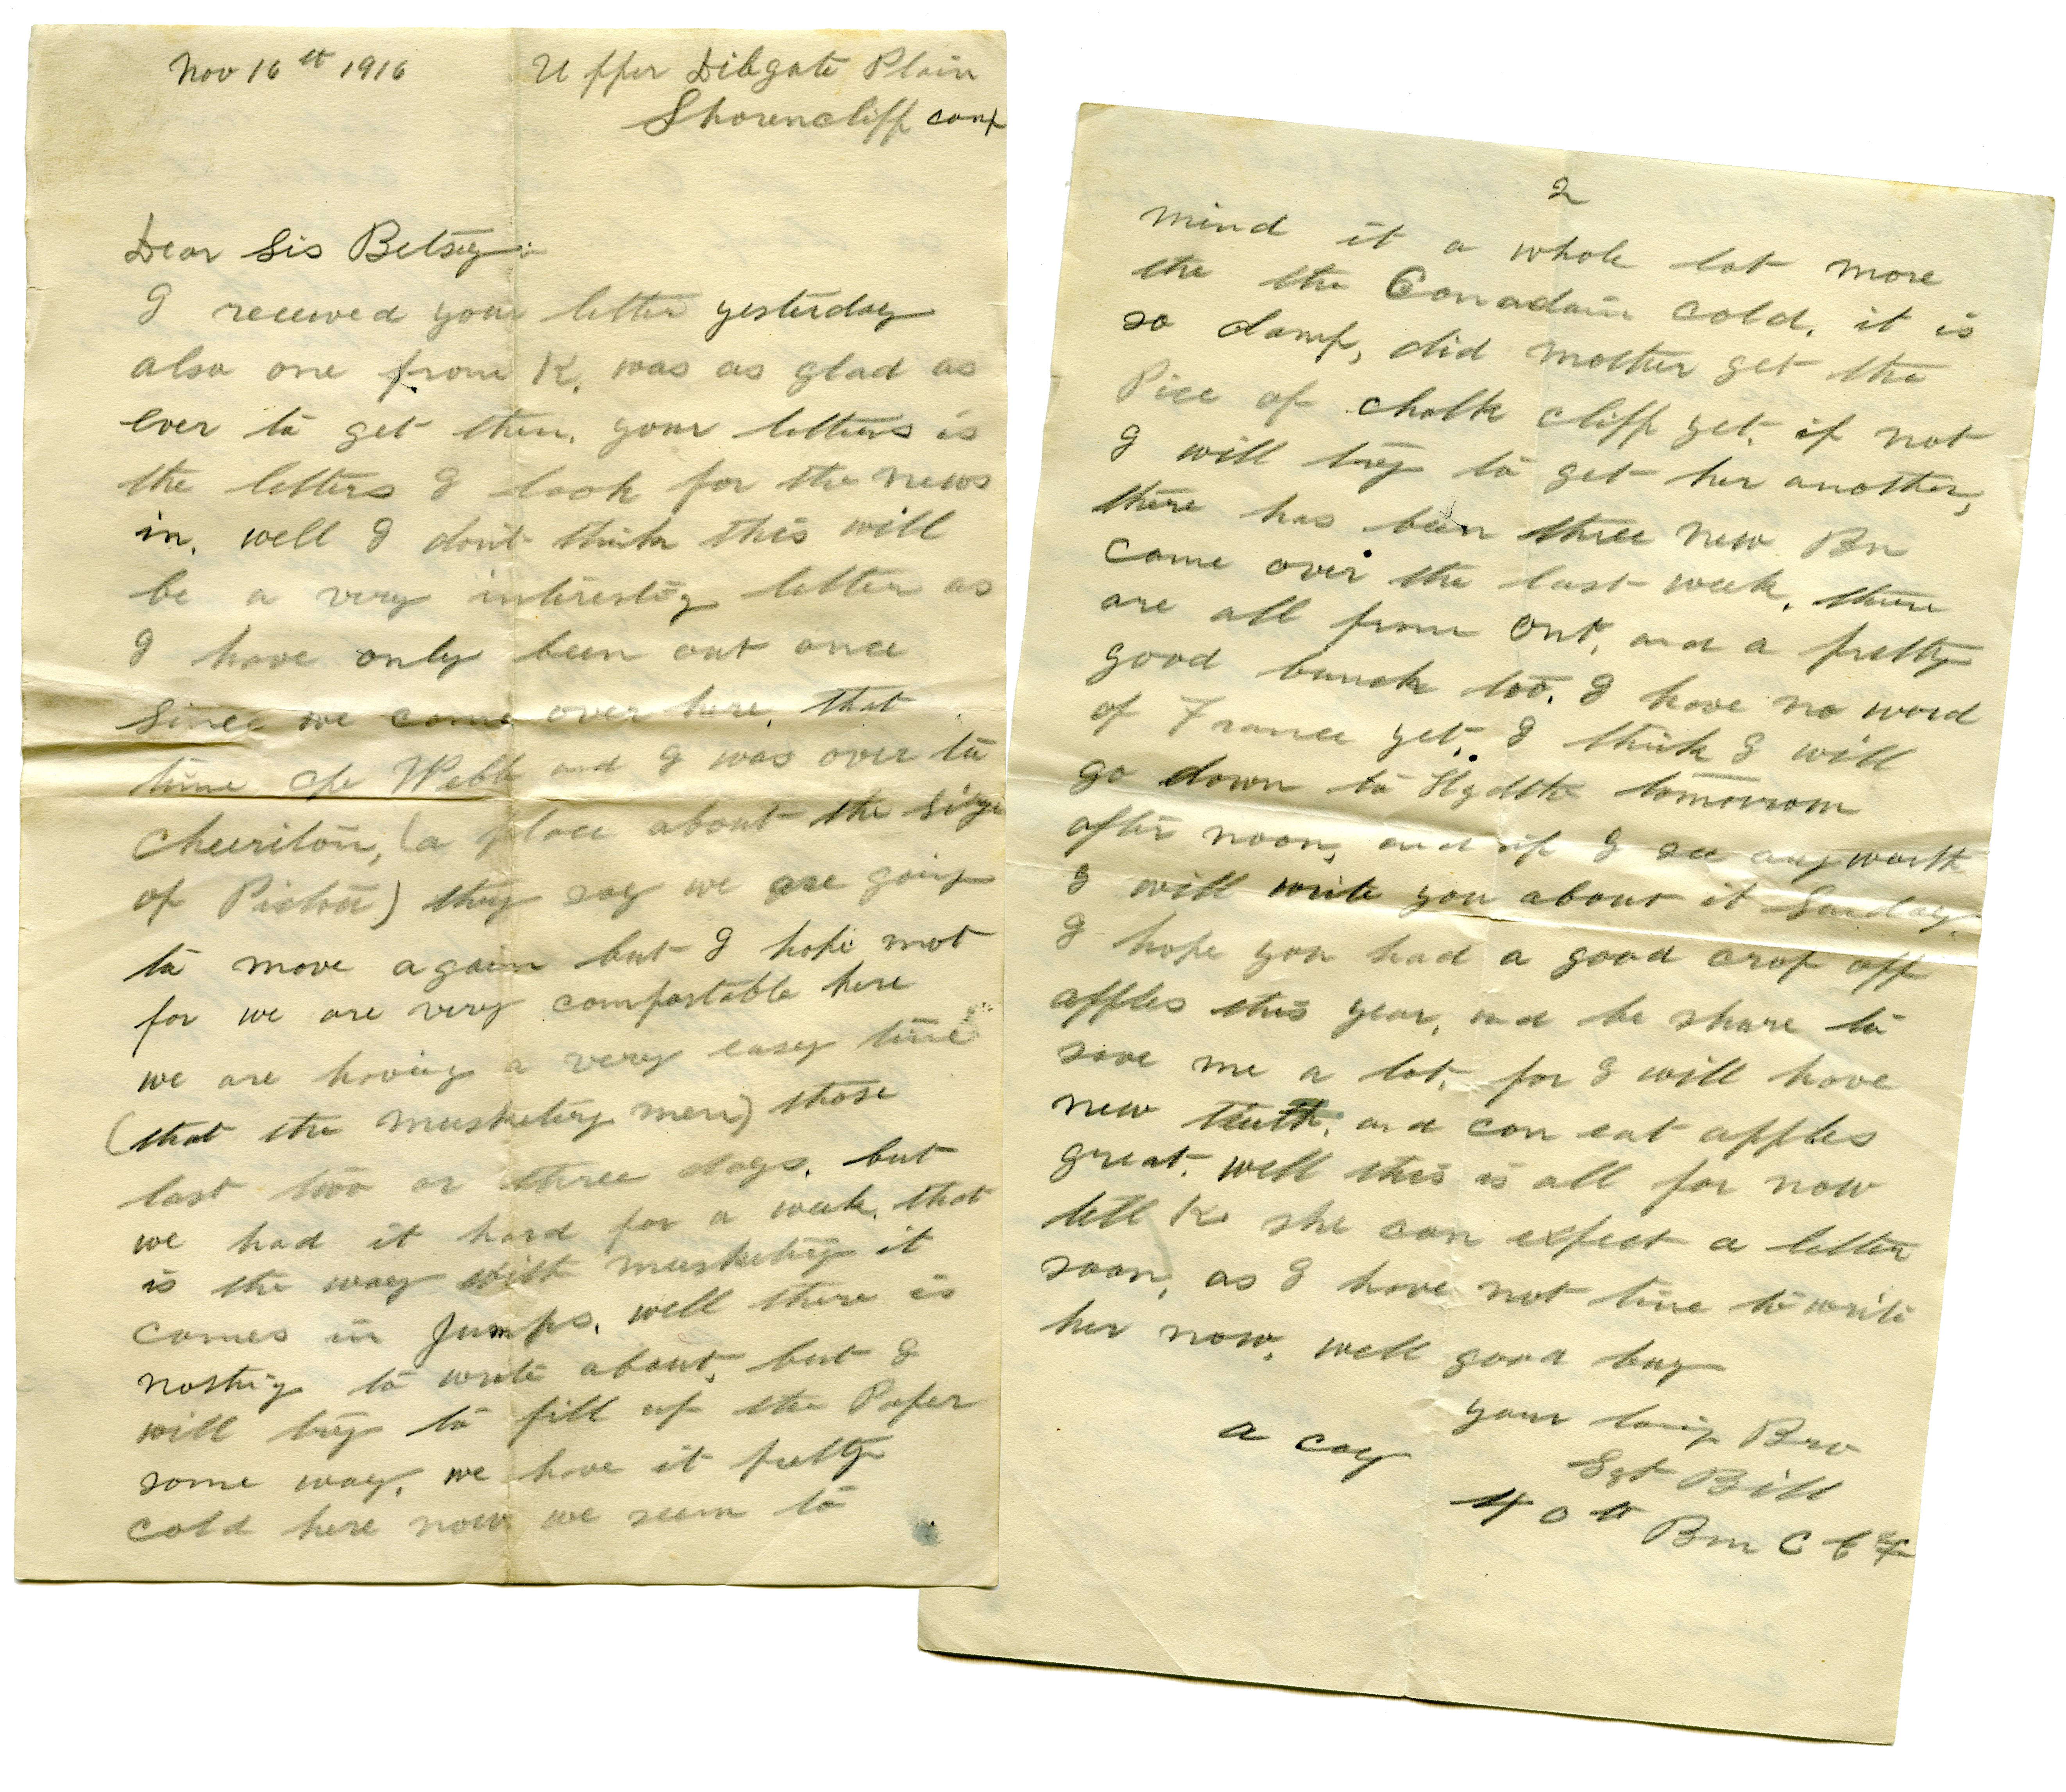 Nov 16th 1916 Upper Dibgate Plain
Shorencliff camp
Dear Sis Betsey:
I received your letter yesterday
also one from K. was as glad as
ever to get them. your letters is
the letters I look for the news
in. well I don't think this will
be a very interestig letter as
I have only been out once
since we came over here. that
time Cpl Webb and I was over to
Cheeriton, (a place about the size
of Picton) they say we are going
to move again but I hope not
for we are very comfortable here
we are having a very easy time
(that the musketry men) those
last two or three days. but
we had it hard for a week. that
is the way with musketry it
comes in jumps. well there is
nothig to write about. but I
will try to fill up the Paper
some way. we have it pretty
cold here now we seem to
2
mind it a whole lot more
the the Canadain cold. it is
so damp, did mother get the
Pice of chalk cliff yet. if not
I will try to get her another,
there has been three new Bn
came over the last week. there
are all from Ont, and a pretty
good bunch too. I have no word
of France yet. I think I will
go down to Hydthe tomorrow
after noon, and if I see any worth
I will write you about it Sunday.
I hope you had a good crop off
apples this year, and be shure to
save me a lot, for I will have
new teeth. and can eat apples
great. well this is all for now
tell K. she can expect a letter
soon, as I have not time to write
her now. well good buy
your loving Bro
a coy Sgt Bill
40th Bn C E F